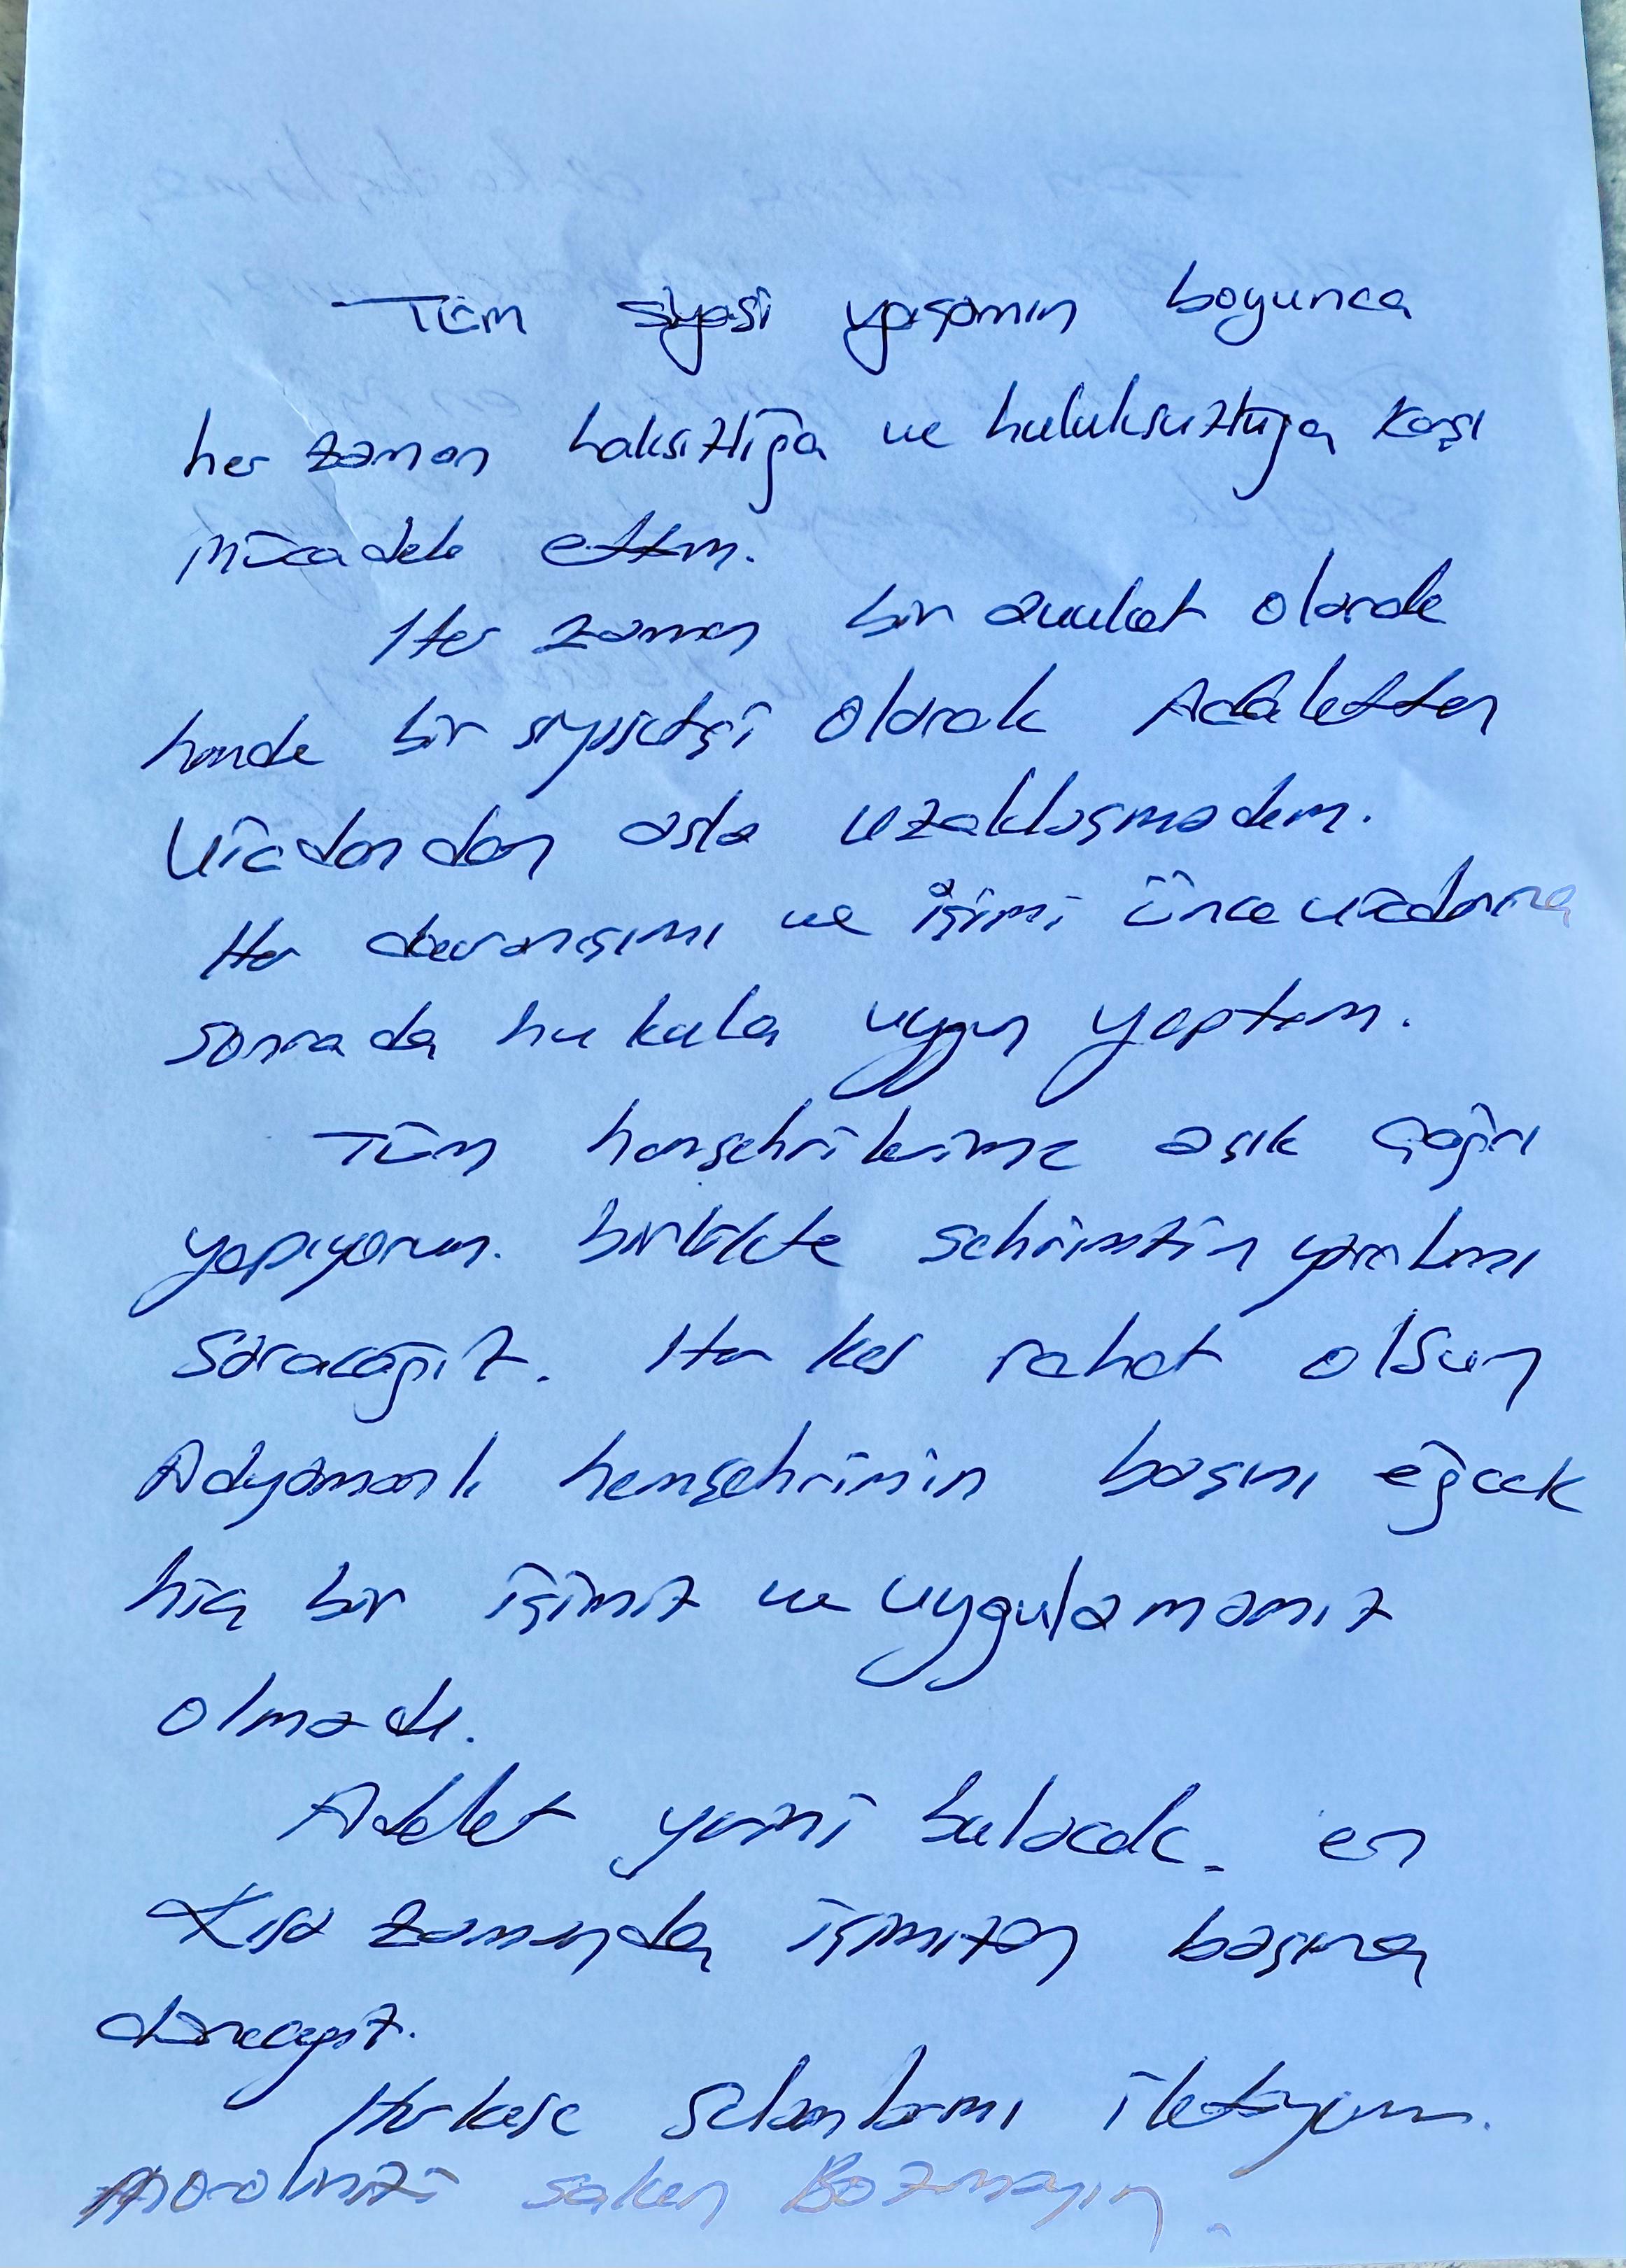 Tüm siyasi yaşamım boyunca
her zaman haksızlığa ve hukuksuzluğa karşı
mücadele ettim.
Her zaman bir avukat olarak
hemde bir siyasetçi olarak Adaletten
Vicdandan asla uzaklaşmadım.
Her davranışımı ve işimi önce vicdanıma
sonrada hukuka uygun yaptım.
Tüm hemşehrilerime açık çağrı
yapıyorum. birlikte şehrimizin yaralarını
saracağız. Herkes rahat olsun
Adıyamanlı hemşehrimin başını eğecek
hiç bir işimiz ve uygulamamız
olmadı.
Adalet yerini bulacak. en
Kısa zamanda işimizin başına
döneceğiz.
Herkese selamlarımı iletiyorum.
Moralinizi sakın Bozmayın.